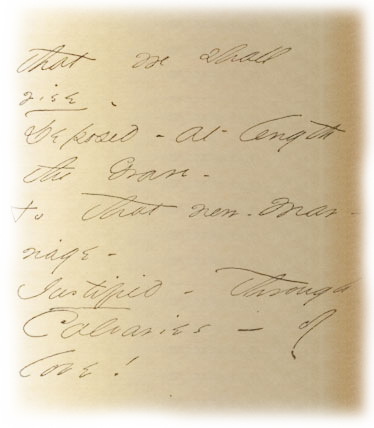 that we shall
rise.
Deposed - at length
the Grave -
To that new - Mar-
riage -
Justified - through
Calvaries - of
Love!